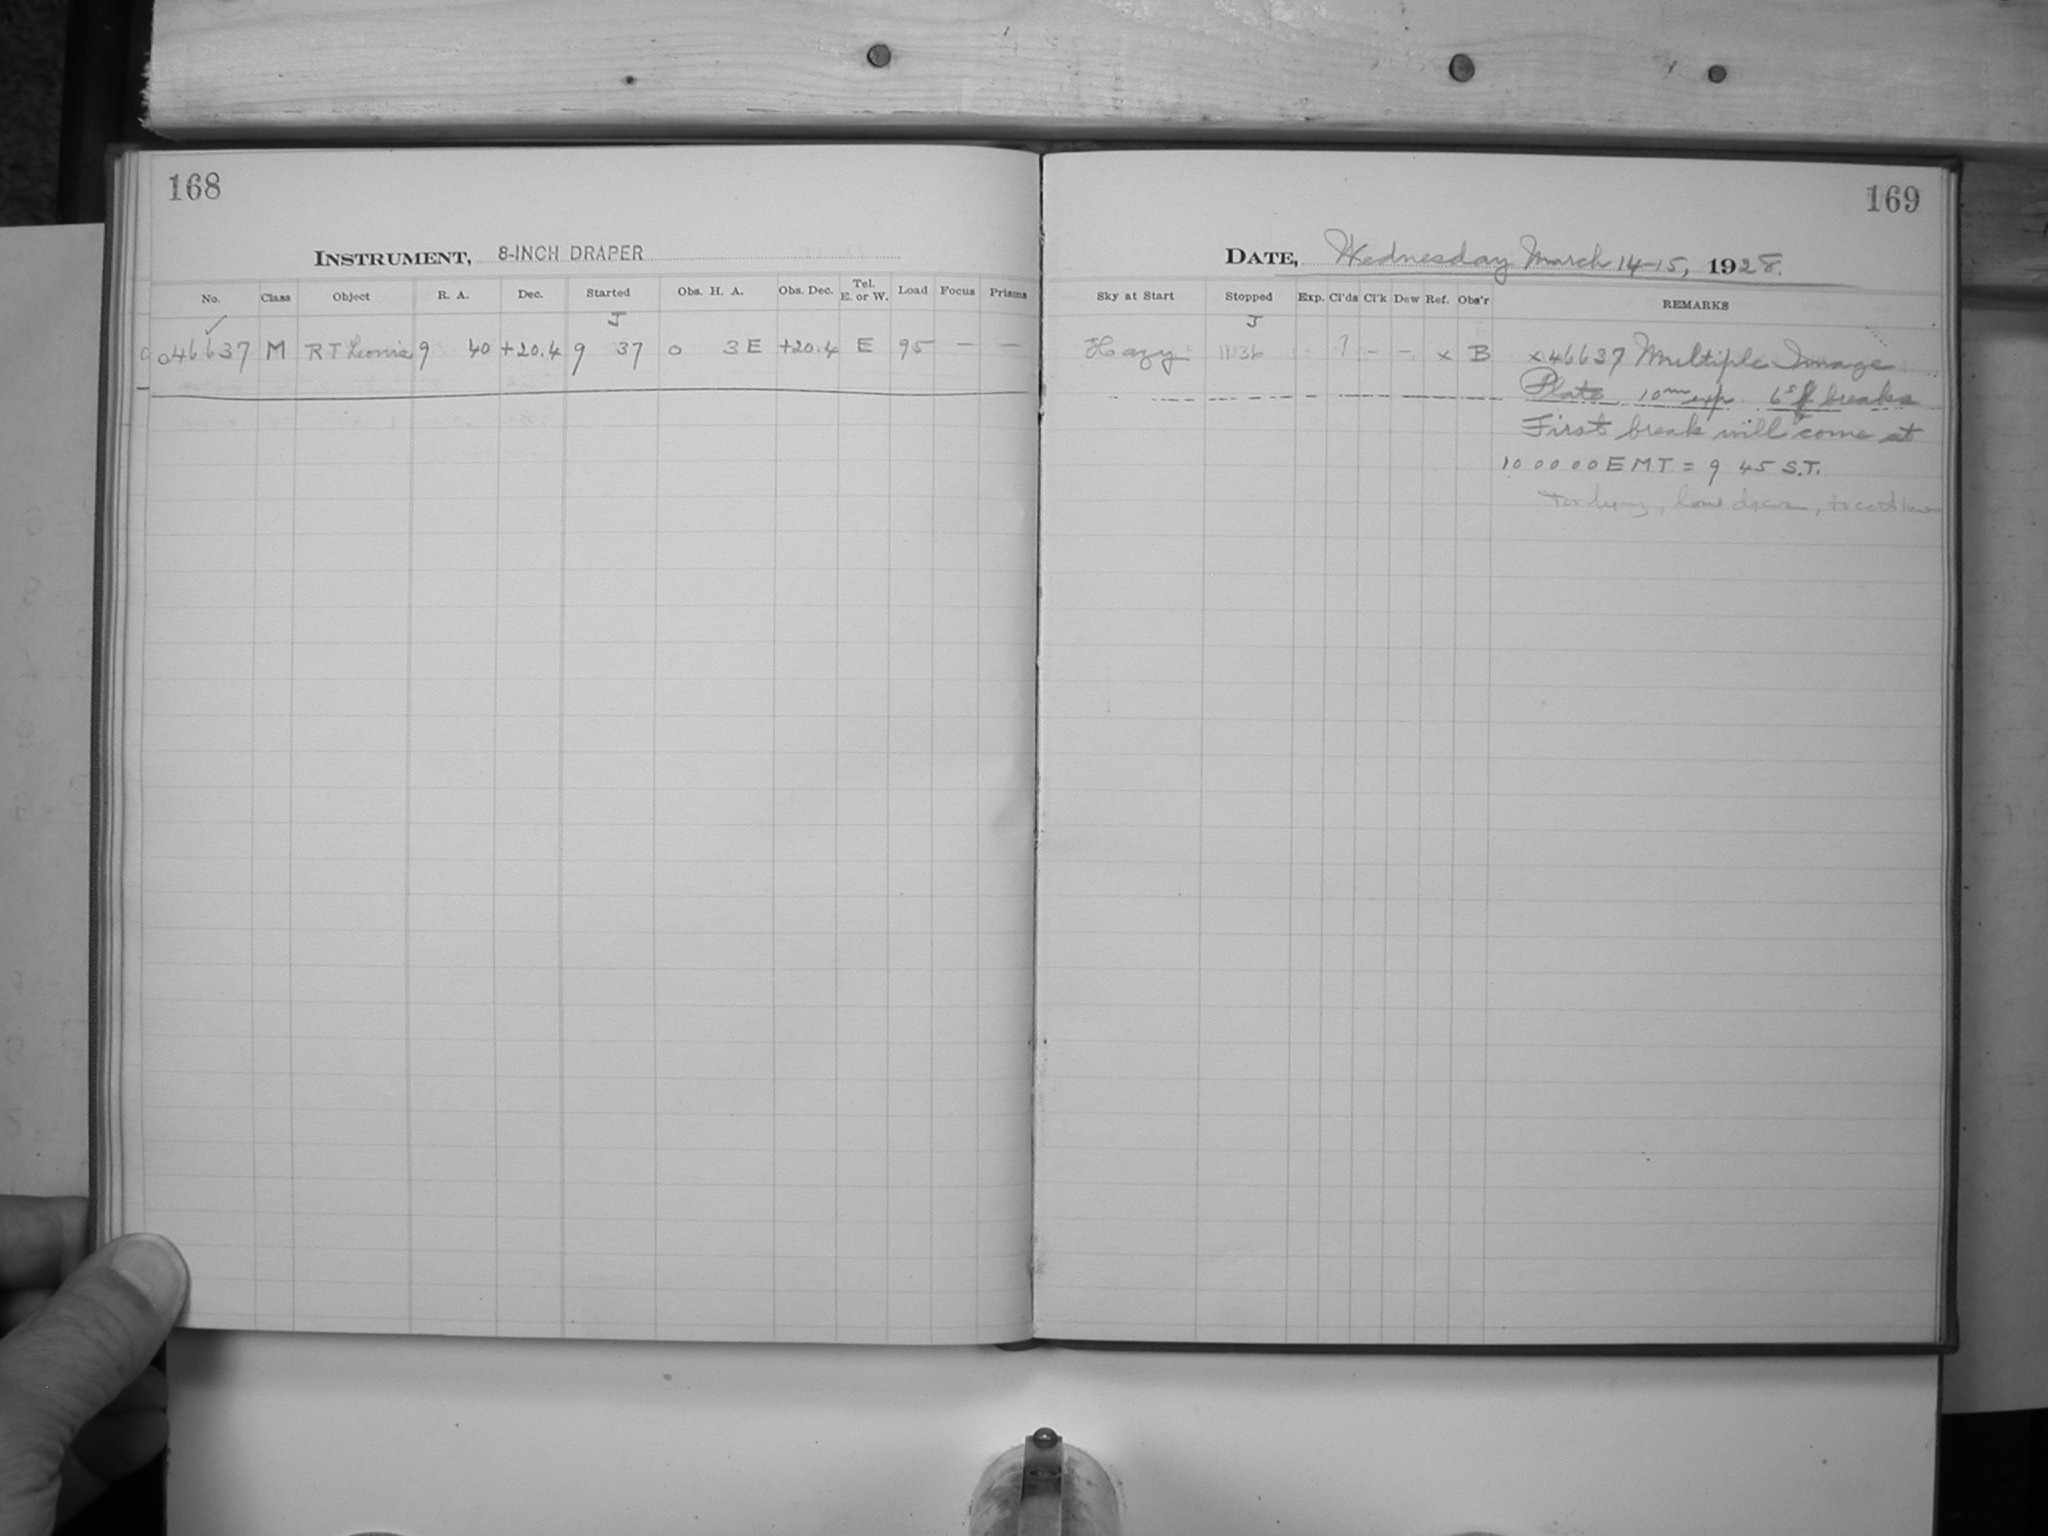 168
INSTRUMENT, 8-INCH DRAPER
No. Class Object R. A. Dec. Started Obs. H. A. Obs. Dec. Tel. E. or W. Load Focus Prisms
J
✓
46637 M RT Leonis 9 40 +20.4 9 37 0 3 E +20.4 E 95 — —
169
DATE, Wednesday March 14-15, 1928.
Sky at Start Stopped Exp. Cl'ds Cl'k Dew Ref. Obs'r REMARKS
J
Hazy 1136 - ? - - x B x46637 Multiple Image
Plate 10m exp. 6s breaks
First break will come at
10 00 00 E M T = 9 45 S.T.